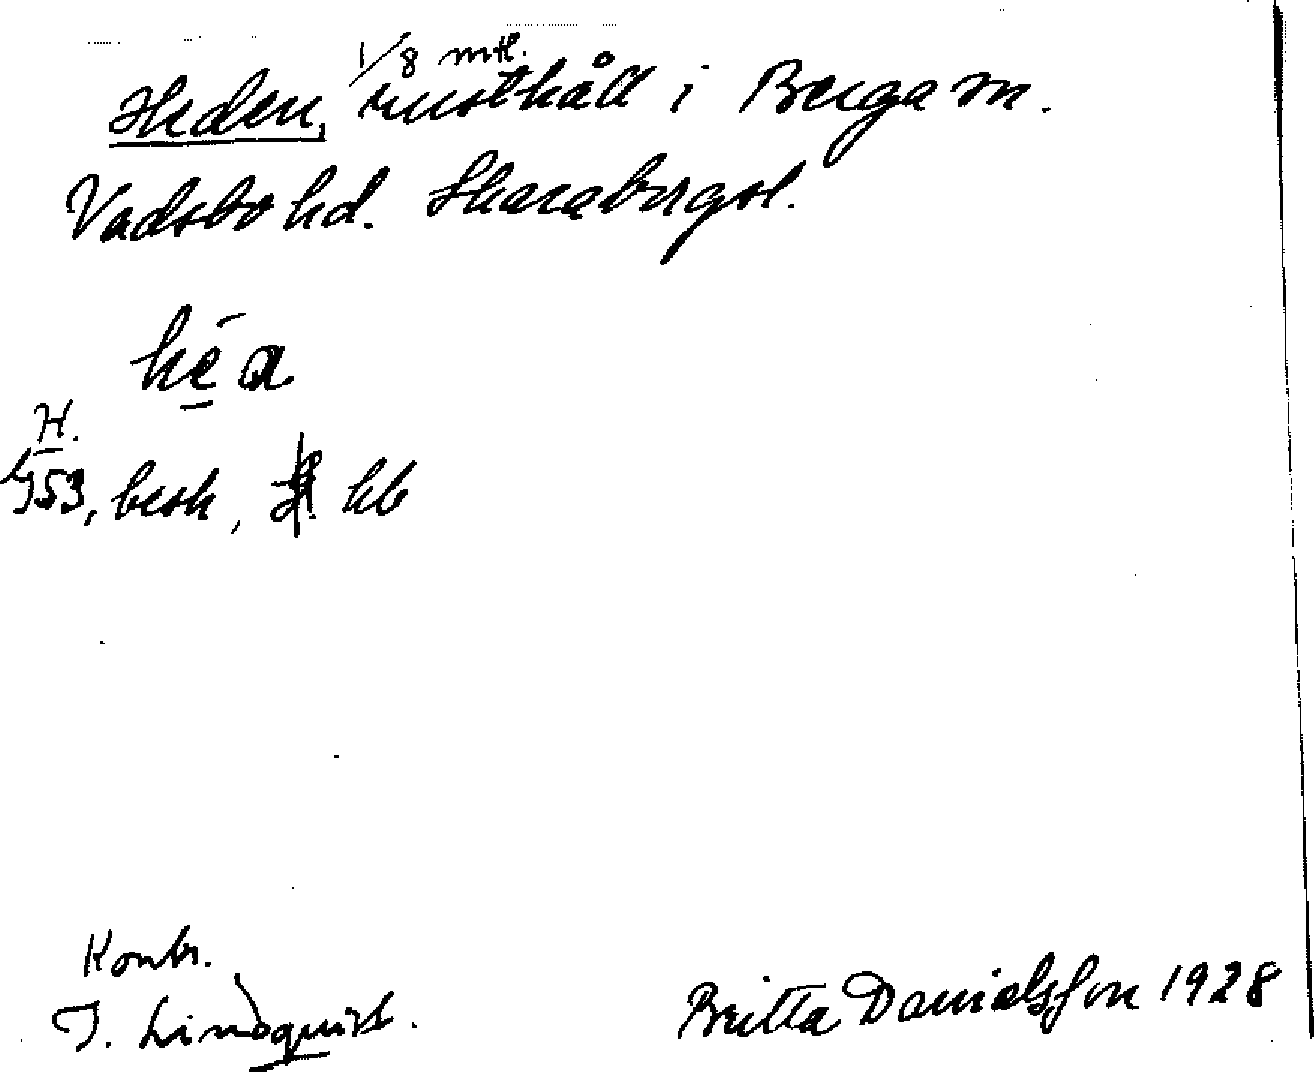 1/8 mtl.
Heden, rusthåll i Berga sn.
Vadsbo hd. Skarabergsl.
hé̱a
H.
g53, besk, hb
Kontr.
I. Lindquist.
Britta Danielsson 1928